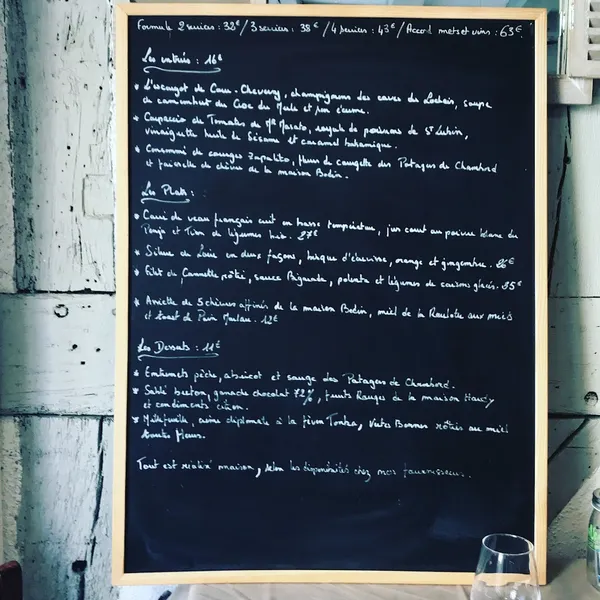 Formule 2 services : 32€ / 3 services : 38€ / 4 services : 43€ / Accord mets et vins : 63€
Les entrées : 16€
* L'escargot de Cour-Cheverny, champignons des caves du Lochois, soupe
de camembert du Clos du et son écume.
* Carpaccio de Tomates de Mr Masato, royale de poivrons de St Lubin,
vinaigrette huile de Sésame et caramel balsamique.
* Consommé de courges Zapallito, fleur de courgette des Potagers de Chambord
et faisselle de chèvre de la maison Bodin.
Les Plats :
* Carré de veau français cuit en basse température, jus court au poivre blanc du
Penja et Tian de légumes bio. 27€
* Silure de Loire en deux façons, bisque d'écrevisse, orange et gingembre. 26€
* Filet de Cannette rôti, sauce Bigarade, polenta et légumes de saisons glacés. 35€
* Assiette de 5 chèvres affinés de la maison Bodin, miel de la Roulotte aux mets
et toast de Pain Moulau. 12€
Les Desserts : 11€
* Entremets pêche, abricot et sauge des Potagers de Chambord.
* Sablé breton, ganache chocolat 72%, fruits Rouges de la maison Hardy
et condiments citron.
* Millefeuille, crème diplomate à la fève Tonka, Bonnes rôties au miel
toutes fleurs.
Tout est réalisé maison, selon les disponibilités chez nos fournisseurs.